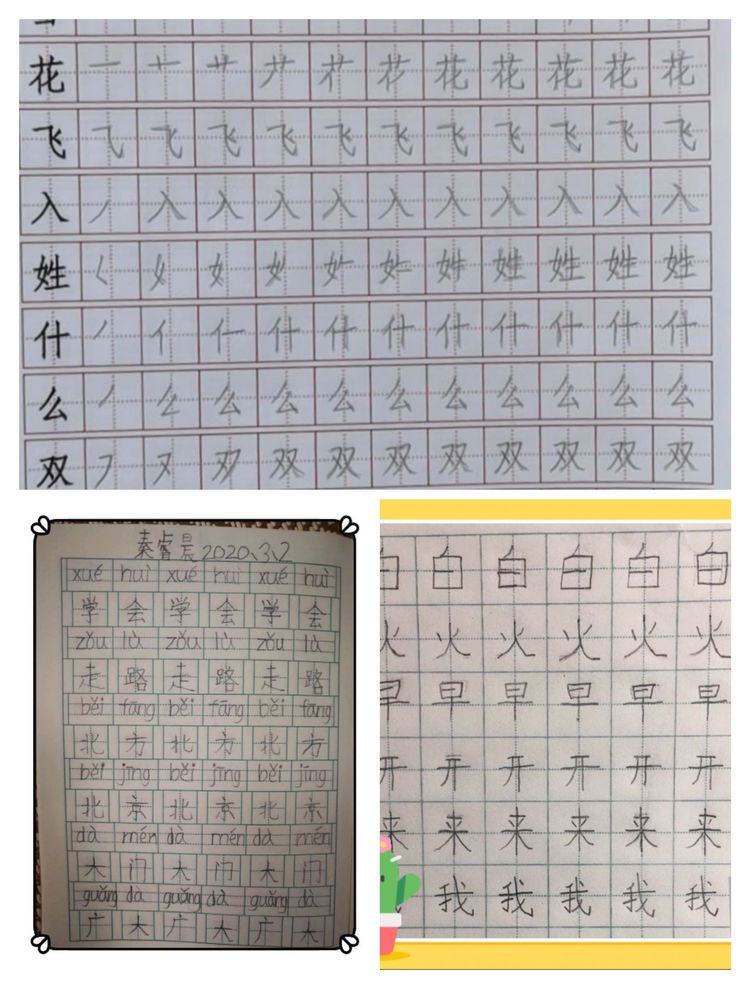 花 花 花 花 花 花
飞 飞 飞 飞 飞 飞 飞 飞 飞 飞
入 入 入 入 入 入 入 入 入 入 入
姓 姓 姓 姓 姓
什 什 什 什 什 什 什 什 什
么 么 么 么 么 么 么 么 么 么
双 双 双 双 双 双 双 双 双
秦睿晨 2020、3、2
xué huì xué huì xué huì
学 会 学 会 学 会
zǒu lù zǒu lù zǒu lù
走 路 走 路 走 路
běi fāng běi fāng běi fāng
北 方 北 方 北 方
běi jīng běi jīng běi jīng
北 京 北 京 北 京
dà mén dà mén dà mén
大 门 大 门 大 门
guǎng dà guǎng dà guǎng dà
广 大 广 大 广 大
白 白 白 白 白 白
火 火 火 火 火 火
早 早 早 早 早 早
开 开 开 开 开 开
来 来 来 来 来 来
我 我 我 我 我